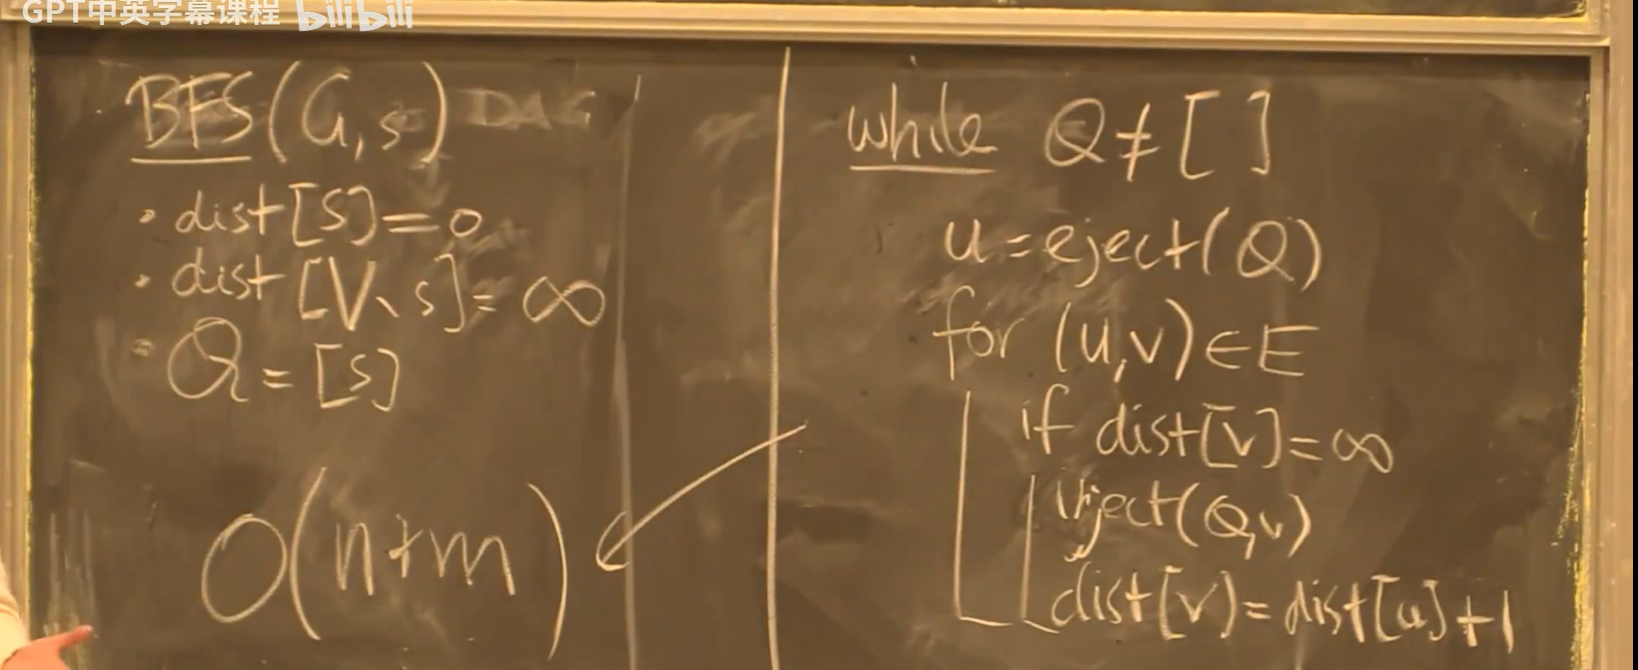 GPT中英字幕课程 bilibili
BFS(G,s) DAG
• dist[s]=0
• dist[V\s]=∞
• Q=[s]
O(n+m)
while Q≠[ ]
u=eject(Q)
for (u,v)∈E
if dist[v]=∞
inject(Q,v)
dist[v]=dist[u]+1